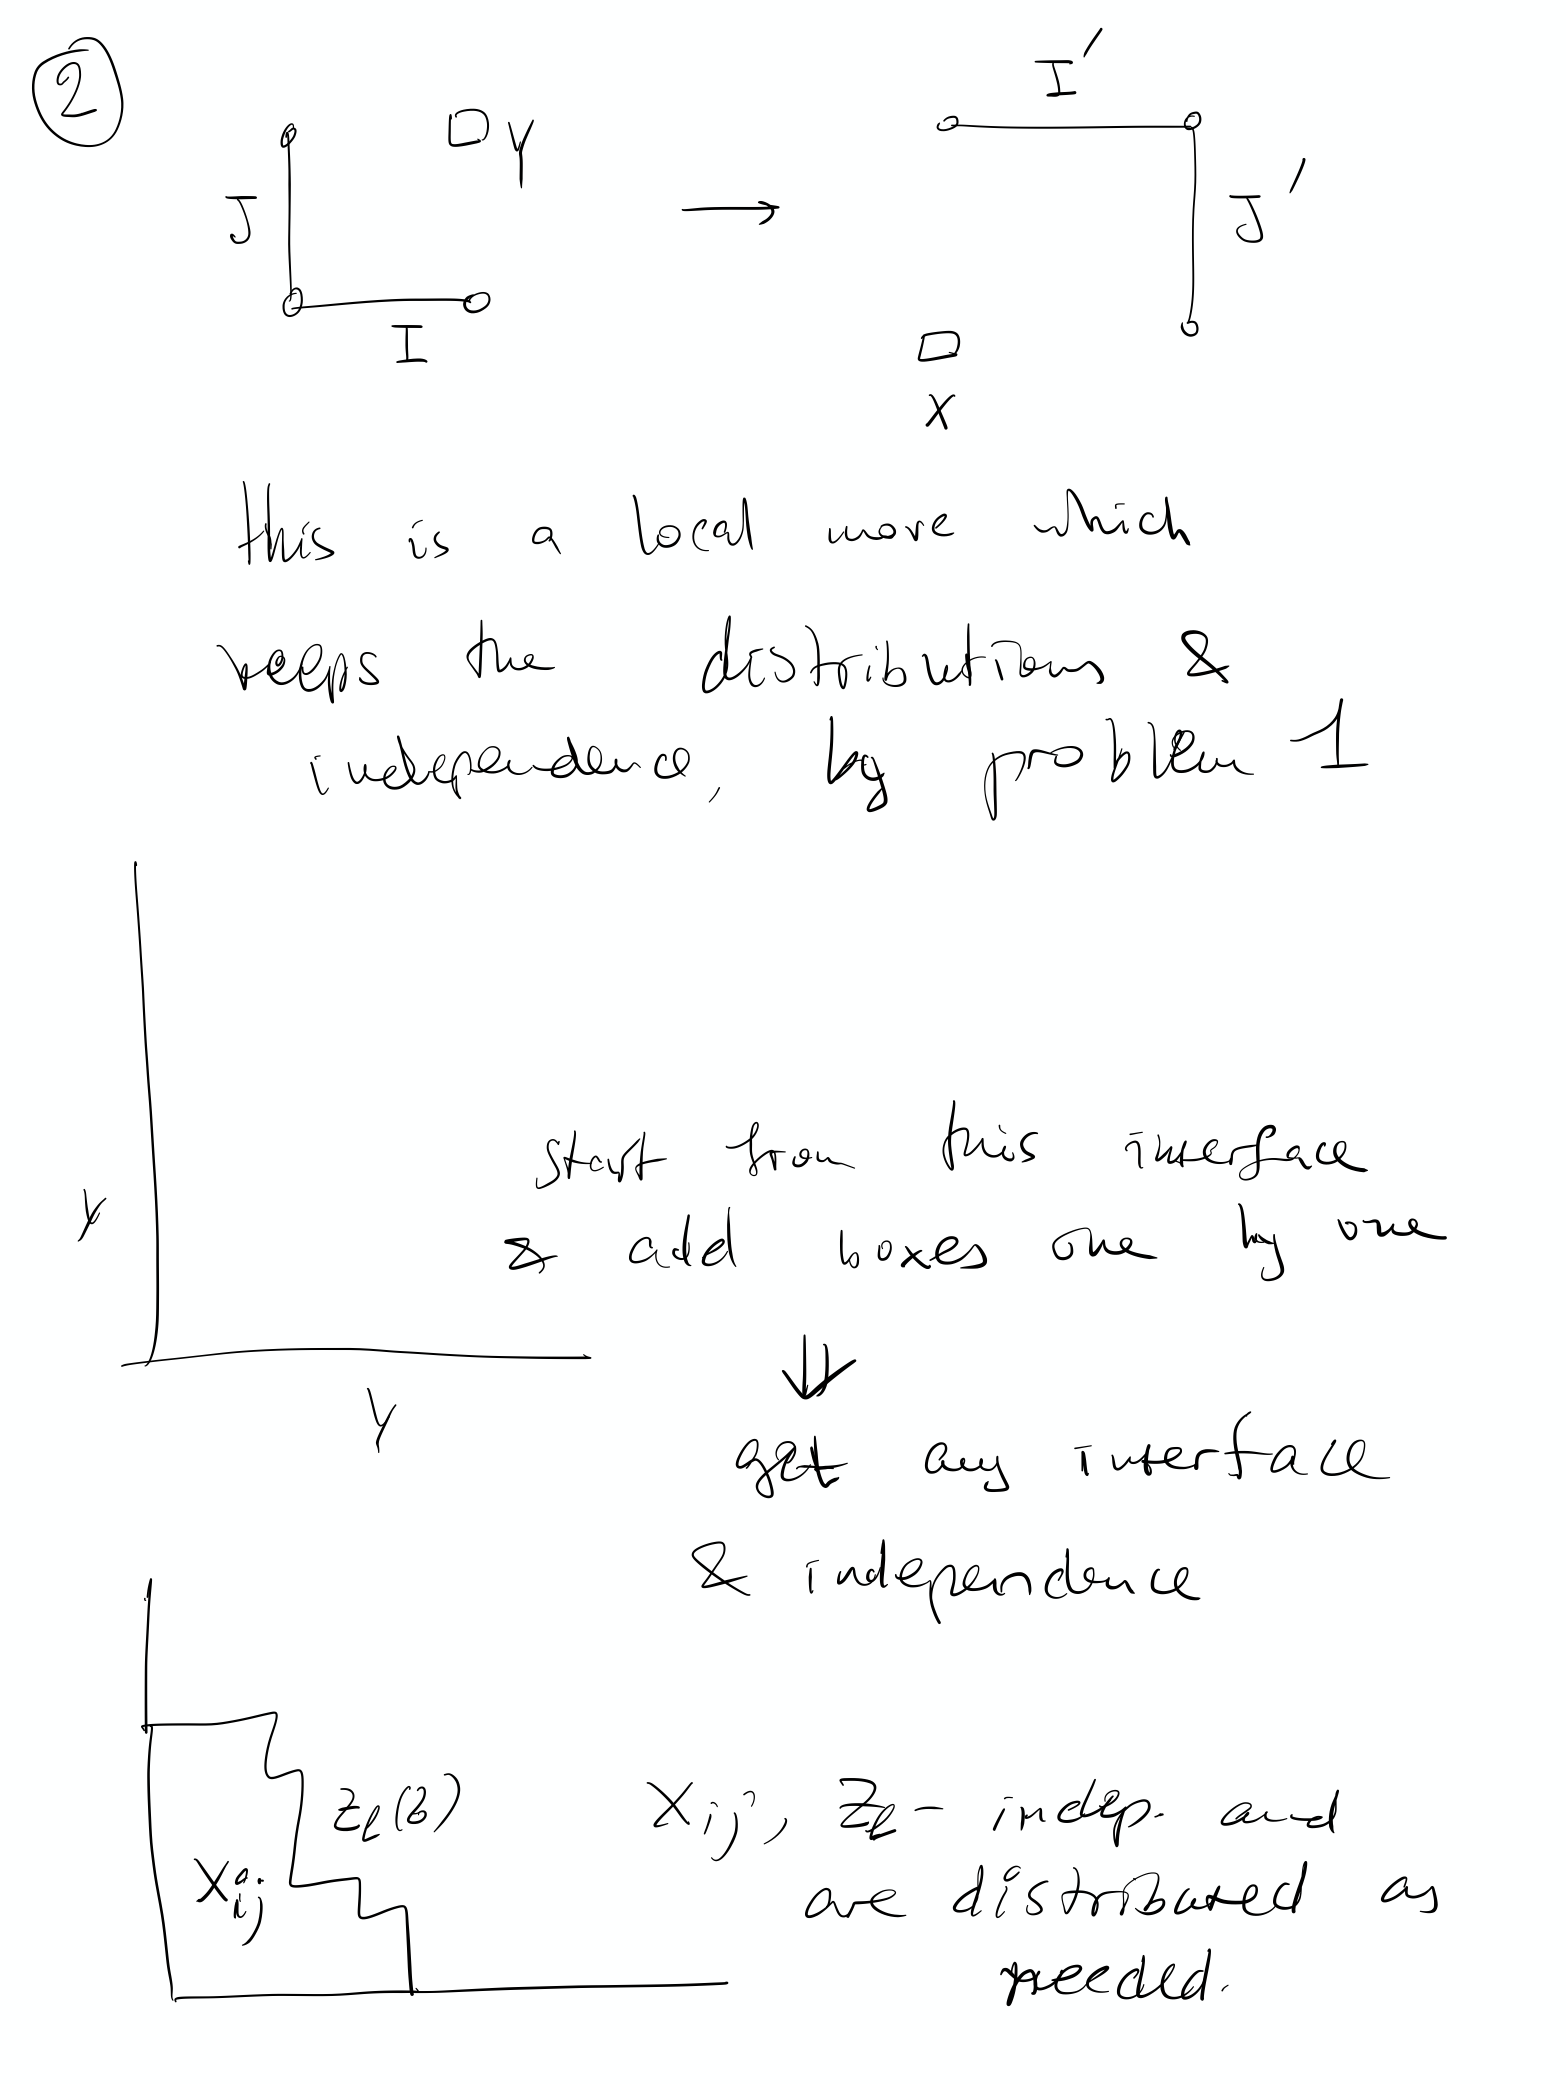 2
I'
J
Y
J'
I
X
this is a local move which
keeps the distributions &
independence, by problem 1
start from this interface
Y
& add boxes one by one
Y
get any interface
& independence
Z_ℓ(B)
X_ij, Z_ℓ - indep. and
X_ij
are distributed as
needed.